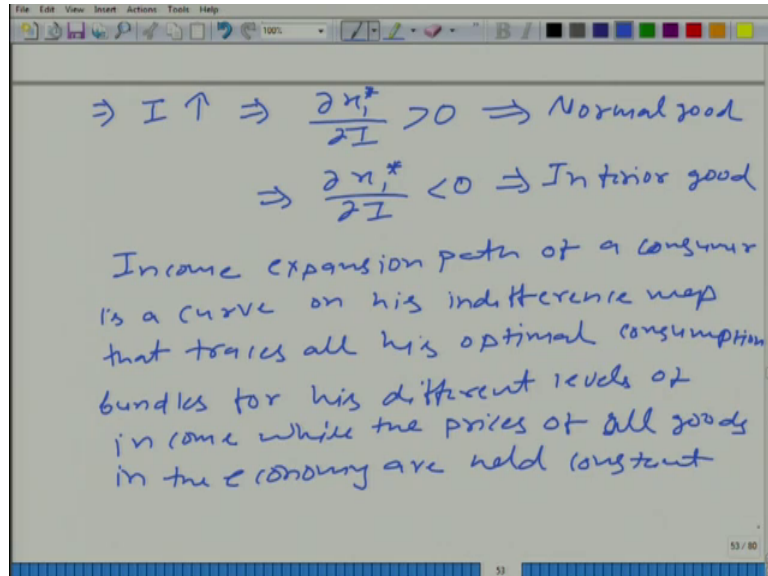 File Edit View Insert Actions Tools Help
100%
B I
⇒ I ↑ ⇒ ∂x₁*/∂I > 0 ⇒ Normal good
⇒ ∂x₁*/∂I < 0 ⇒ Inferior good
Income expansion path of a consumer
is a curve on his indifference map
that traces all his optimal consumption
bundles for his different levels of
income while the prices of all goods
in the economy are held constant
53 / 80
53